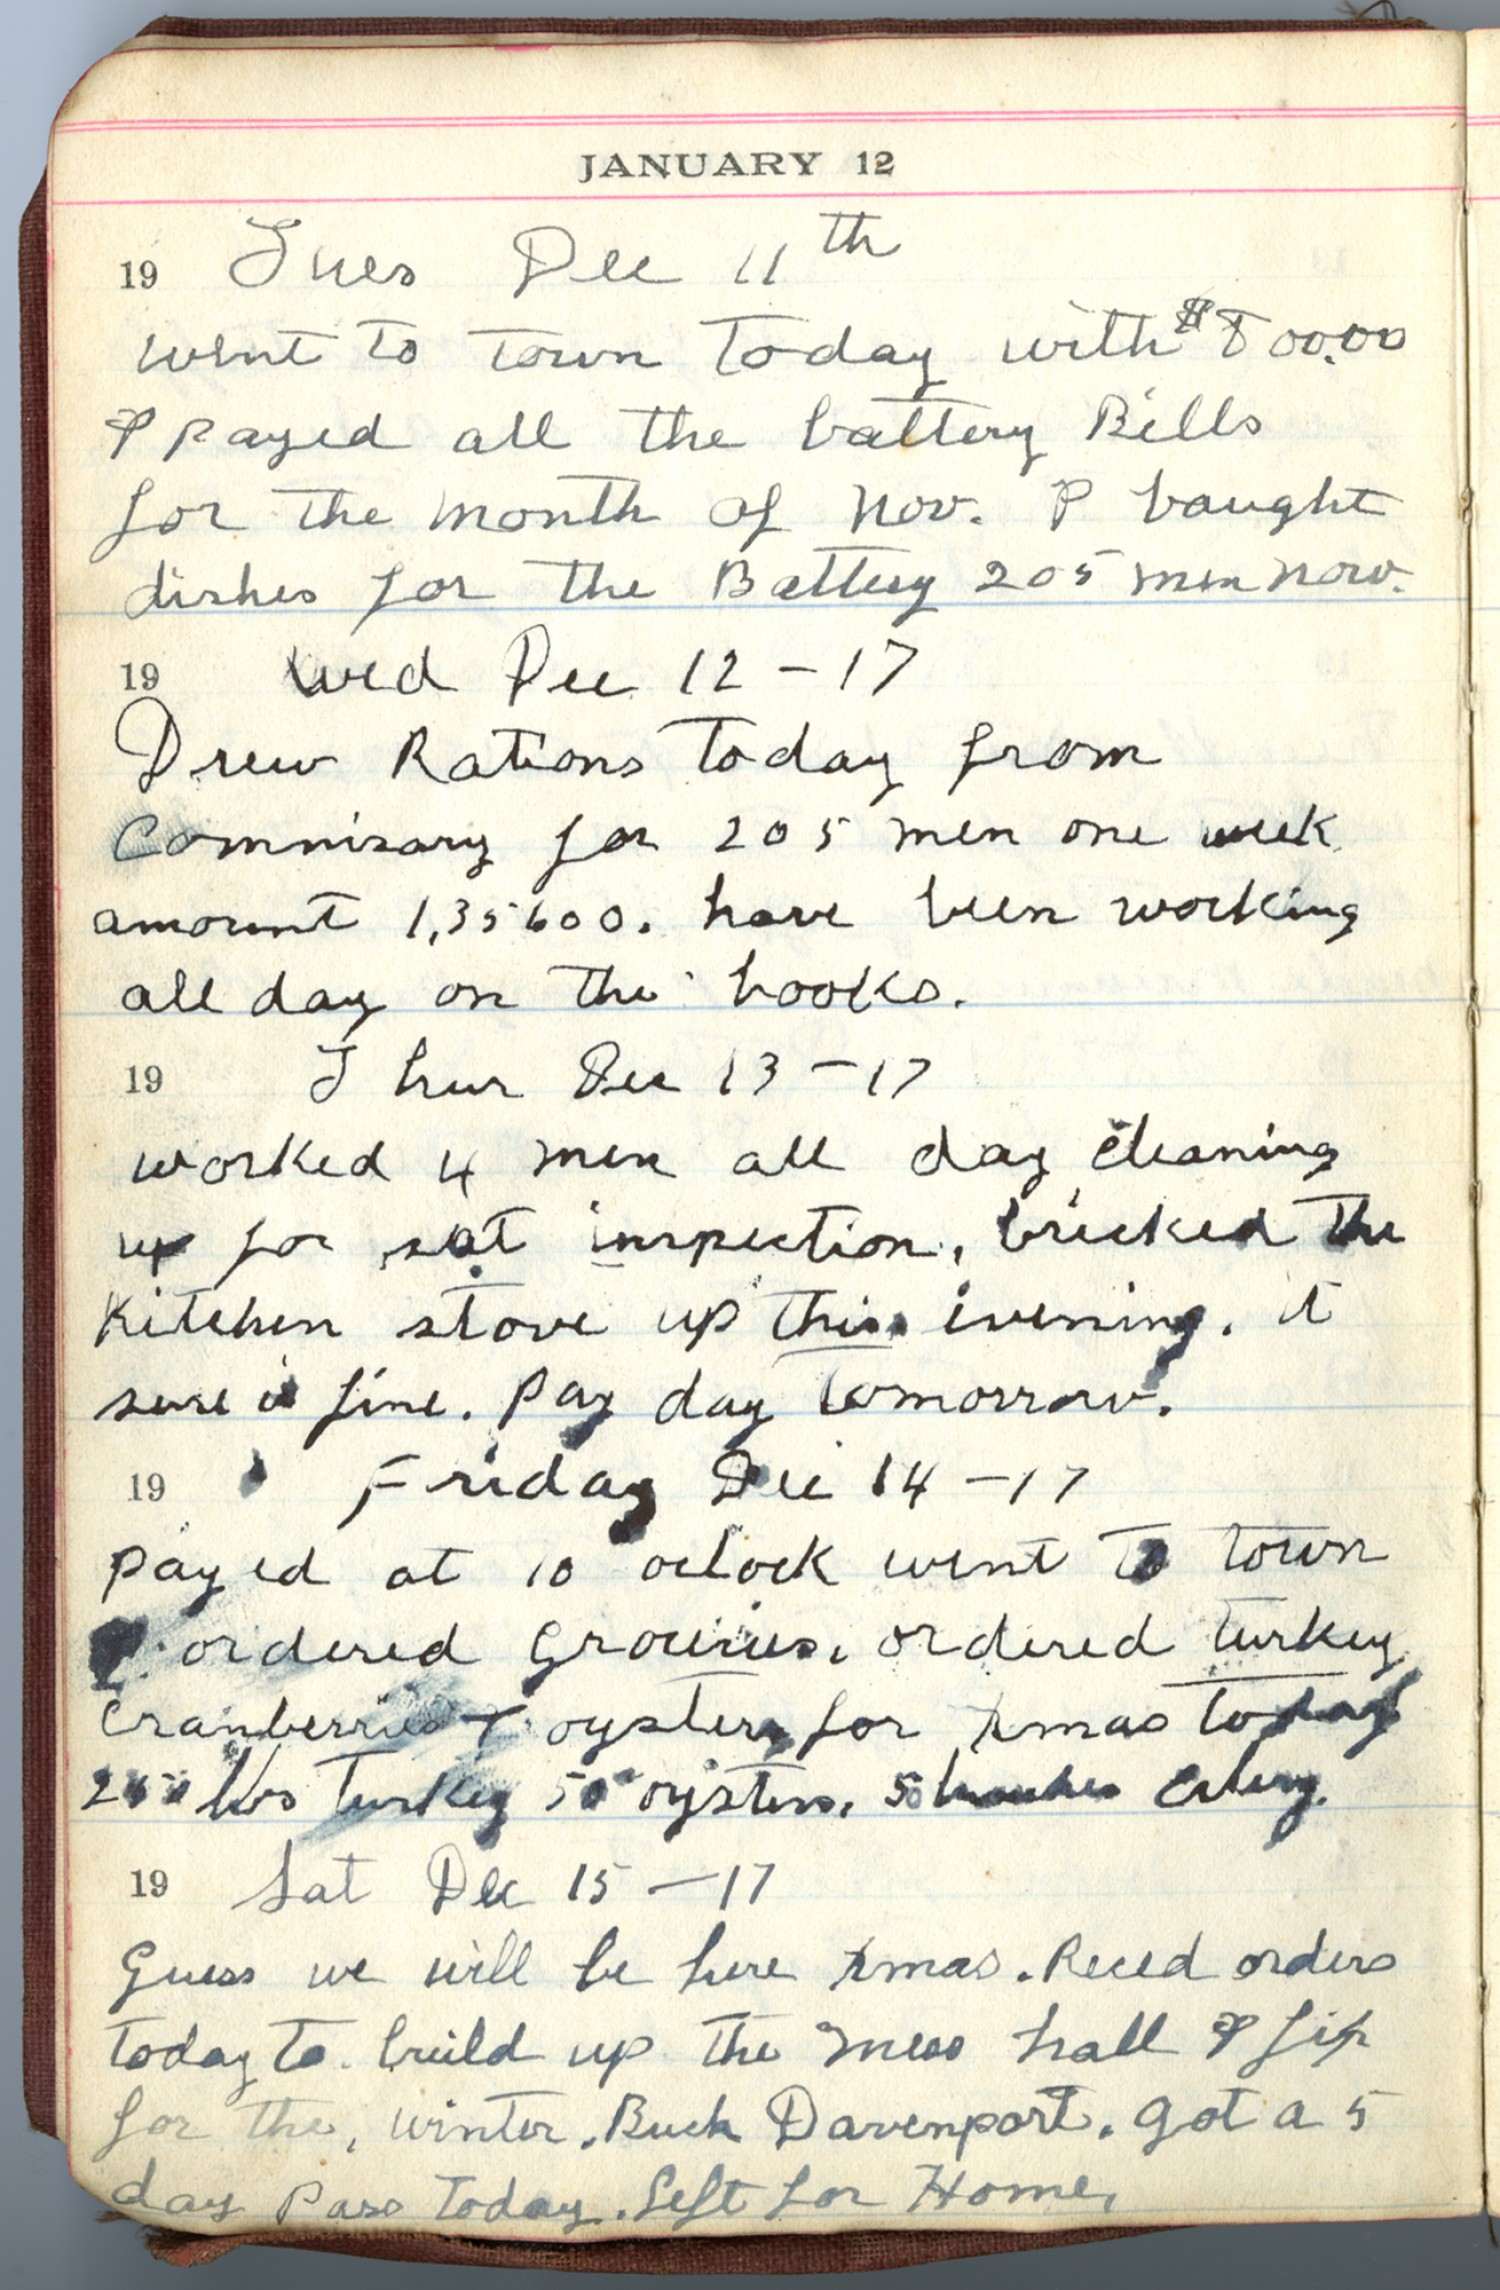 JANUARY 12
19 Tues Dec 11th
went to town today with $800.00
& payed all the battery Bills
for the month of Nov. & baught
dishes for the Battery 205 men now.
19 Wed Dec 12-17
Drew Rations today from
Commisary for 205 men one week
amount 1,35600. have been working
all day on the books.
19 Thur Dec 13-17
worked 4 men all day cleaning
up for sat inspection, bricked the
Kitchen stove up this evening. it
sure is fine. Pay day tomorrow.
19 Friday Dec 14-17
payed at 10 oclock went to town
& ordered Groceries, ordered turkey
Cranberries & oysters for Xmas today
lbs Turkey 50 oysters, 50 bunches Celery.
19 Sat Dec 15-17
Guess we will be here Xmas. Reced orders
today to build up the mess hall & fix
for the, winter. Buck Davenport. got a 5
day Pass today. Left for Home,